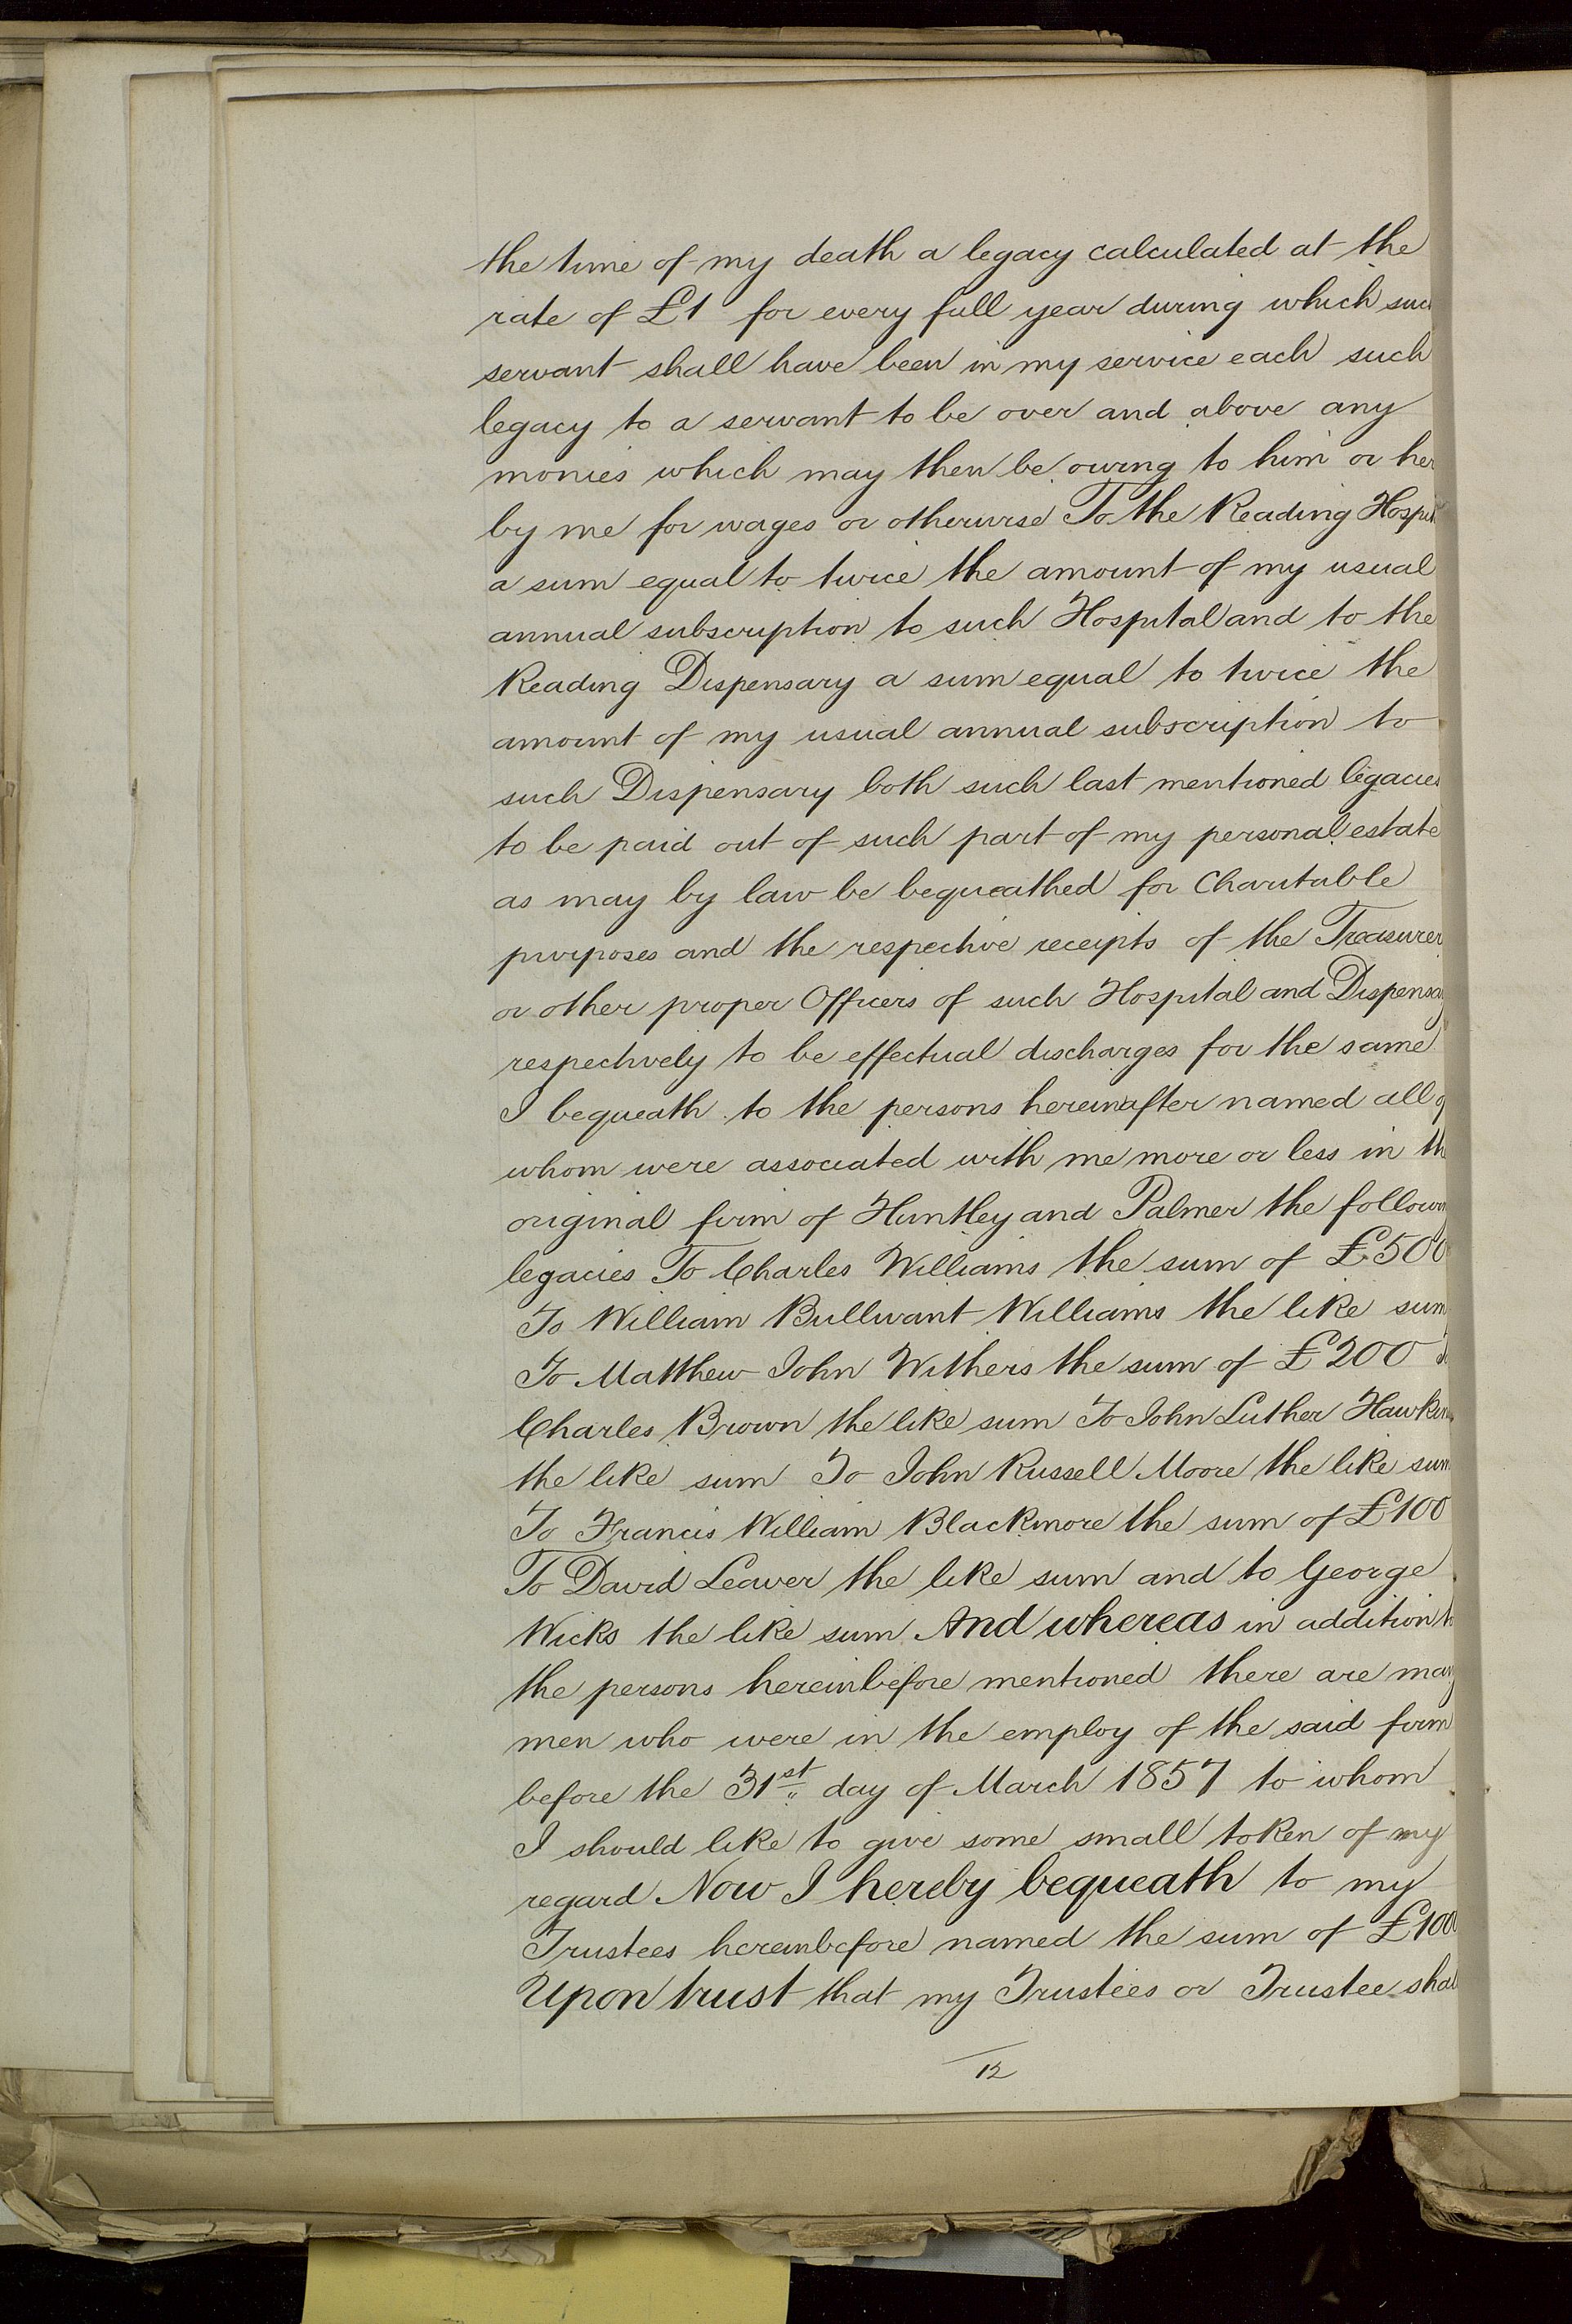 the time of my death a legacy calculated at the
rate of £1 for every full year during which suc
servant shall have been in my service each such
legacy to a servant to be over and above any
monies which may then be owing to him or her
by me for wages or otherwise To the Reading Hospit
a sum equal to twice the amount of my usual
annual subscription to such Hospital and to the
Reading Dispensary a sum equal to twice the
amount of my usual annual subscription to
such Dispensary both such last mentioned legacies
to be paid out of such part of my personal estate
as may by law be bequeathed for Charitable
purposes and the respective receipts of the Treasurer
or other proper Officers of such Hospital and Dispensa
respectively to be effectual discharges for the same
I bequeath to the persons hereinafter named all o
whom were associated with me more or less in th
original firm of Huntley and Palmer the followin
legacies To Charles Williams the sum of £500
To William Bullivant Williams the like sum
To Matthew John Withers the sum of £200
Charles Brown the like sum To John Luther Hawkin
the like sum To John Russell Moore the like sum
To Francis William Blackmore the sum of £100
To David Leaver the like sum and to George
Wicks the like sum And whereas in addition to
the persons hereinbefore mentioned there are many
men who were in the employ of the said firm
before the 31st day of March 1857 to whom
I should like to give some small token of my
regard Now I hereby bequeath to my
Trustees hereinbefore named the sum of £1000
Upon trust that my Trustees or Trustee shal
12